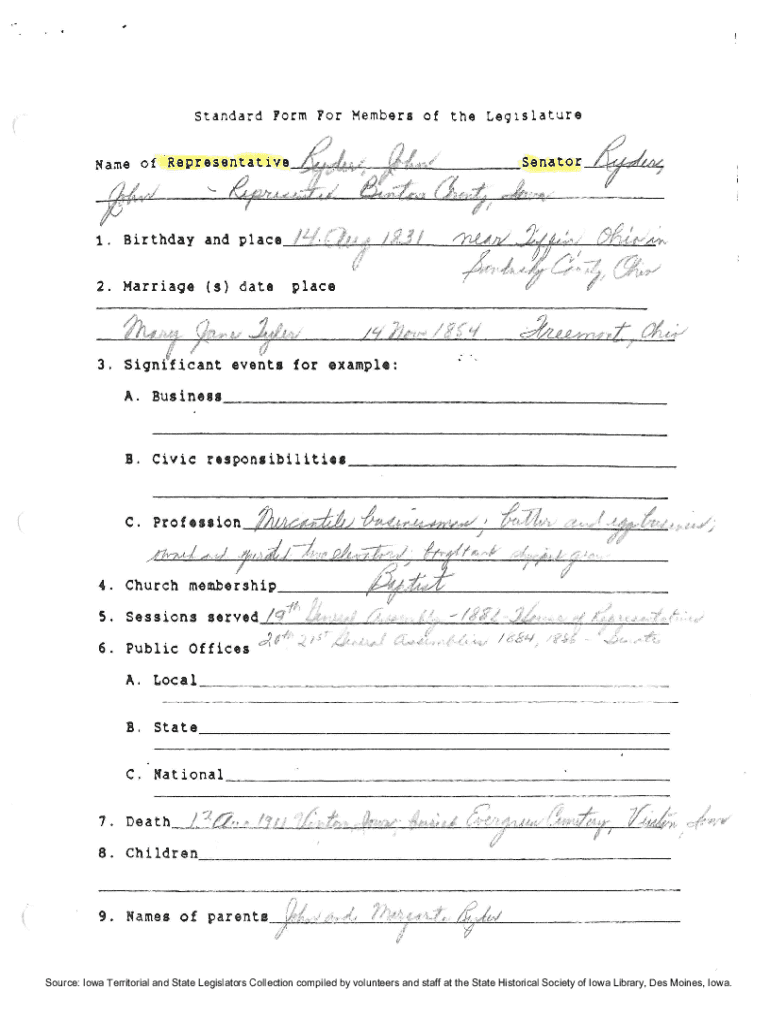 Standard Form For Members of the Legislature
Name of Representative Ryder, John Senator Ryder,
John - Represented Benton County, Iowa
1. Birthday and place 14 Aug 1831 near Tiffin Ohio in
Sandusky County, Ohio
2. Marriage (s) date place
Mary Jane Tyler 14 Nov 1854 Freemont, Ohio
3. Significant events for example:
A. Business
B. Civic responsibilities
C. Profession Mercantile businessman; butter and egg business;
owned and operated two elevators; bought and shipped grain
4. Church membership Baptist
5. Sessions served 19th General Assembly - 1882 - House of Representatives
20th 21st General Assemblies 1884, 1886 - Senate
6. Public Offices
A. Local
B. State
C. National
7. Death Aug 1911 Vinton, Iowa; buried Evergreen Cemetery, Vinton, Iowa
8. Children
9. Names of parents John and Margarite Ryder
Source: Iowa Territorial and State Legislators Collection compiled by volunteers and staff at the State Historical Society of Iowa Library, Des Moines, Iowa.